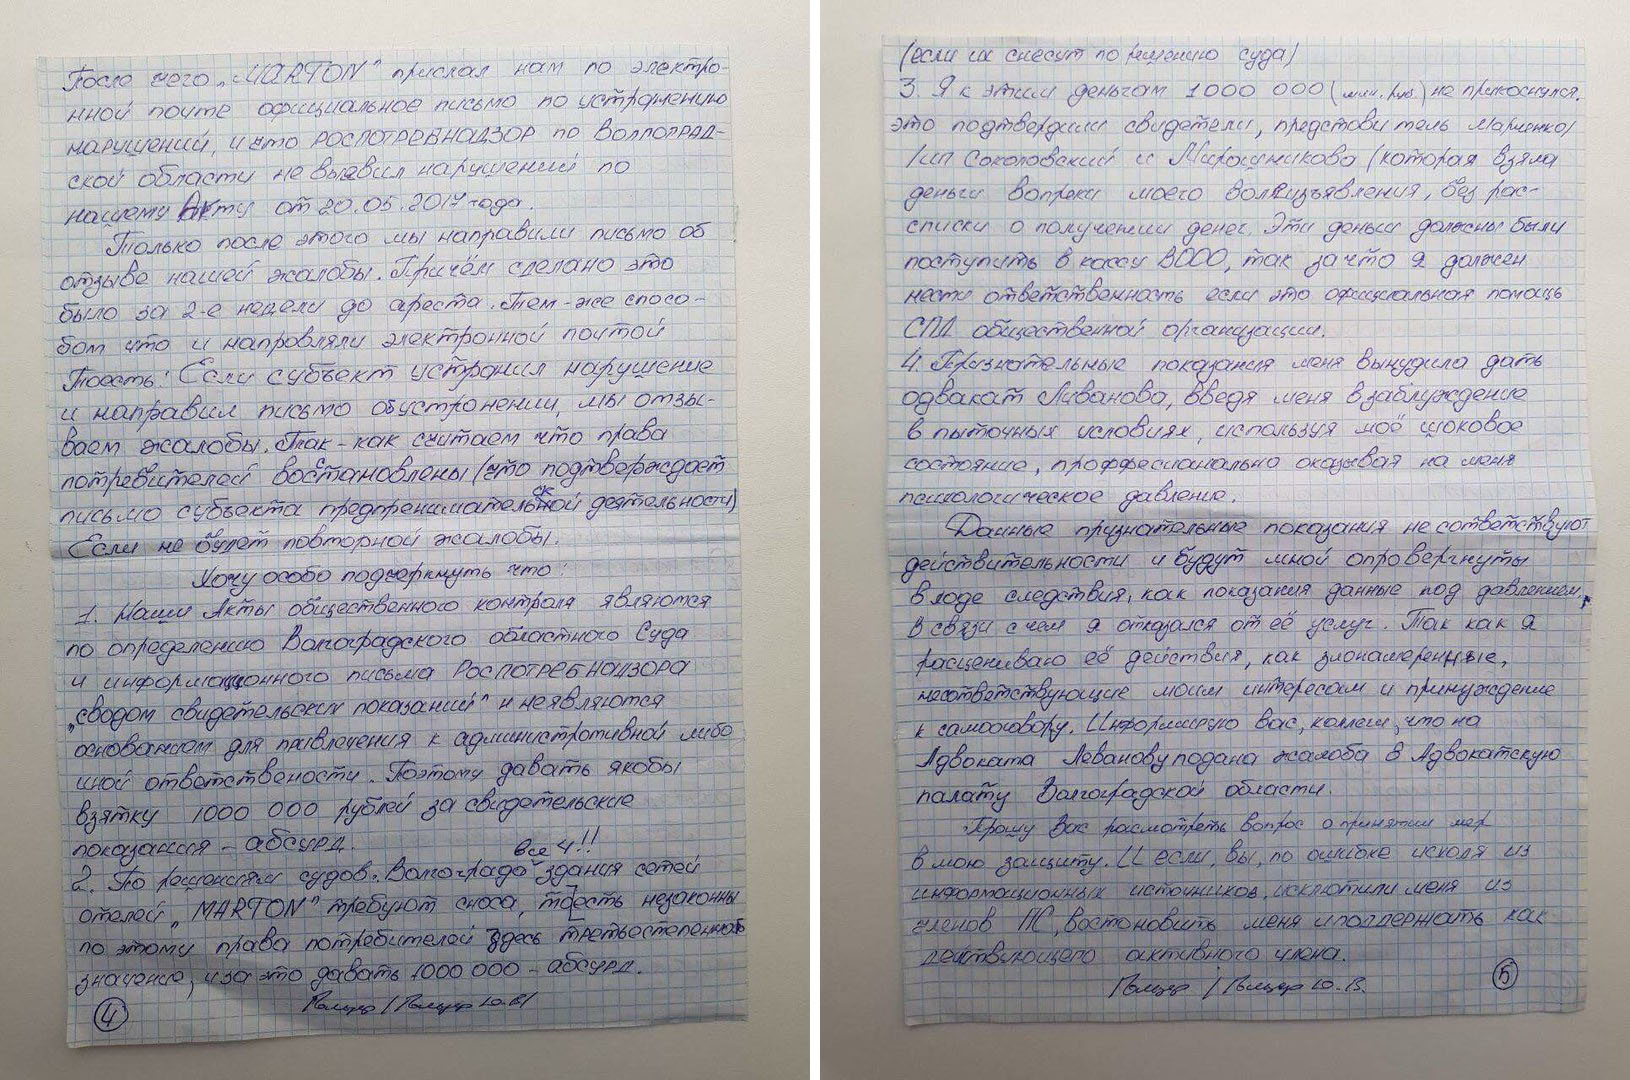 После чего „MARTON" прислал нам по электро-
нной почте официальное письмо по устранению
нарушений, и что РОСПОТРЕБНАДЗОР по ВОЛГОГРАД-
ской области не выявил нарушений по
нашему Акту от 20.05.2017 года.
Только после этого мы направили письмо об
отзыве нашей жалобы. Причём сделано это
было за 2-е недели до ареста. Тем-же спосо-
бом что и направляли электронной почтой
Тоесть: Если субъект устранил нарушение
и направил письмо обустронении, мы отзы-
ваем жалобы. Так-как считаем что права
потребителей востановлены (что подтверждает
письмо субъекта предпренимательской деятельности)
Если не будет повторной жалобы.
Хочу особо подчеркнуть что:
1. Наши Акты общественного контроля являются
по определению Волгоградского областного Суда
и информационного письма РОСПОТРЕБНАДЗОРА
„сводом свидетельских показаний" и неявляются
основанием для привлечения к административной либо
иной ответствености. Поэтому давать якобы
взятку 1000 000 рублей за свидетельские
показания – абсурд.
все 4!!
2. По решениям судов г. Волгограда здания сетей
отелей „MARTON" требуют сноса, тоесть незаконны
по этому права потребителей здесь третьестепенное
значение, и за это давать 1000 000 – абсурд.
④ Голцер / Голцер Ю.В/
(если их снесут по решению суда)
3. Я к этим деньгам 1000 000 (млн. руб.) не прикоснулся.
это подтвердили свидетели, представитель Марченко/
/ип Соколовский и Мирошникова (которая взяла
деньги вопреки моего волеизъявления, без рас-
списки о получении денег. Эти деньги должны были
поступить в кассу ВООО, так за что я должен
нести ответственность если это официальная помощь
СПД общественной организации.
4. Признательные показания меня вынудила дать
адвакат Ливанова, введя меня в заблуждение
в пыточных условиях, используя моё шоковое
состояние, проффесионально оказывая на меня
психологическое давление.
Данные признательные показания не сответствуют
действительности и будут мной опровергнуты
в ходе следствия, как показания данные под давлением,
в связи с чем я отказался от её услуг. Так как я
расцениваю её действия, как злонамеренные,
несответствующие моим интересам и принуждение
к самооговору. Информирую вас, коллеги, что на
Адвоката Леванову подана жалоба в Адвокатскую
палату Волгоградской области.
Прошу Вас расмотреть вопрос о принятии мер
в мою защиту. И если, вы, по ошибке исходя из
информационных источников, исключили меня из
членов ПС, востоновить меня и поддержать как
действующего активного члена.
Голцер / Голцер Ю.В. ⑤